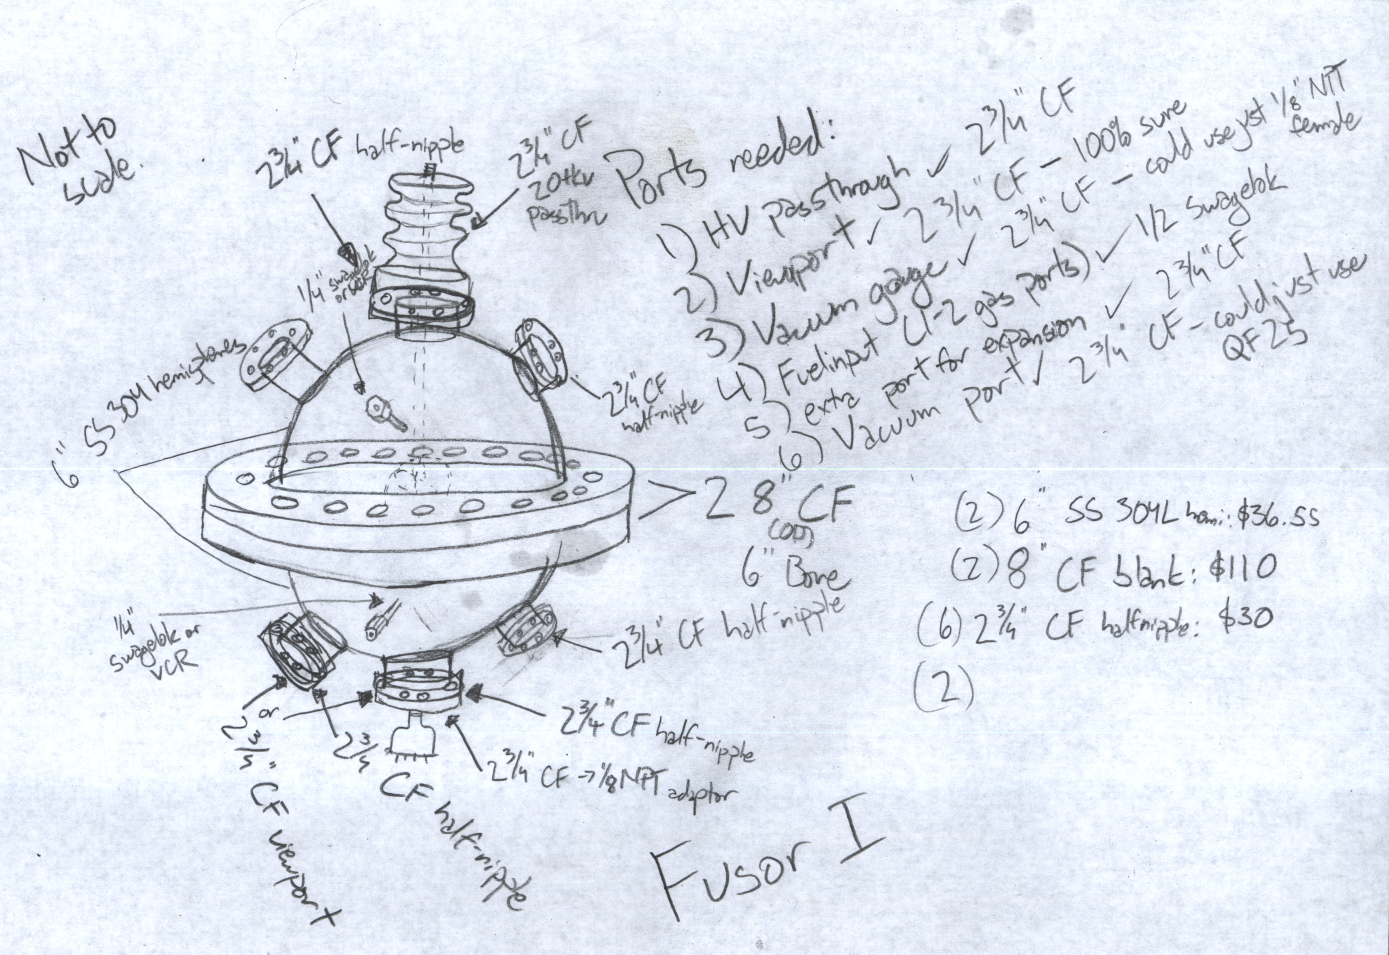 Not to
scale.
2 3/4" CF half-nipple
2 3/4" CF
20+kv
passthru
1/4" swagelok
or VCR
6" SS 304 hemispheres
2 3/4" CF
half-nipple
Ports needed:
1) HV passthrough ✓ 2 3/4" CF
2) Viewport ✓ 2 3/4" CF - 100% sure
3) Vacuum gauge ✓ 2 3/4" CF - could use just 1/8" NPT
female
4) Fuel input (1-2 gas ports) ✓ 1/2 swagelok
5) extra port for expansion ✓ 2 3/4" CF
6) Vacuum port ✓ 2 3/4" CF - could just use
QF25
2 8" CF
(OD)
6" Bore
(2) 6" SS 304L hemi: $36.55
(2) 8" CF blank: $110
(6) 2 3/4" CF halfnipple: $30
(2)
1/4"
swagelok or
VCR
2 3/4" CF half-nipple
or
2 3/4" CF viewport
2 3/4
CF half-nipple
2 3/4" CF half-nipple
2 3/4" CF → 1/8 NPT adaptor
Fusor I